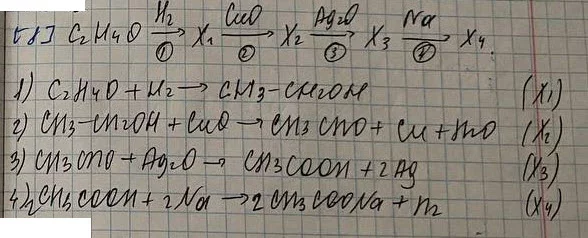 C2H4O H2→ ① X1 CuO→ ② X2 Ag2O→ ③ X3 Na→ ④ X4.
1) C2H4O + H2 → CH3-CH2OH (X1)
2) CH3-CH2OH + CuO → CH3CHO + Cu + H2O (X2)
3) CH3CHO + Ag2O → CH3COOH + 2Ag (X3)
4) 2CH3COOH + 2Na → 2CH3COONa + H2 (X4)